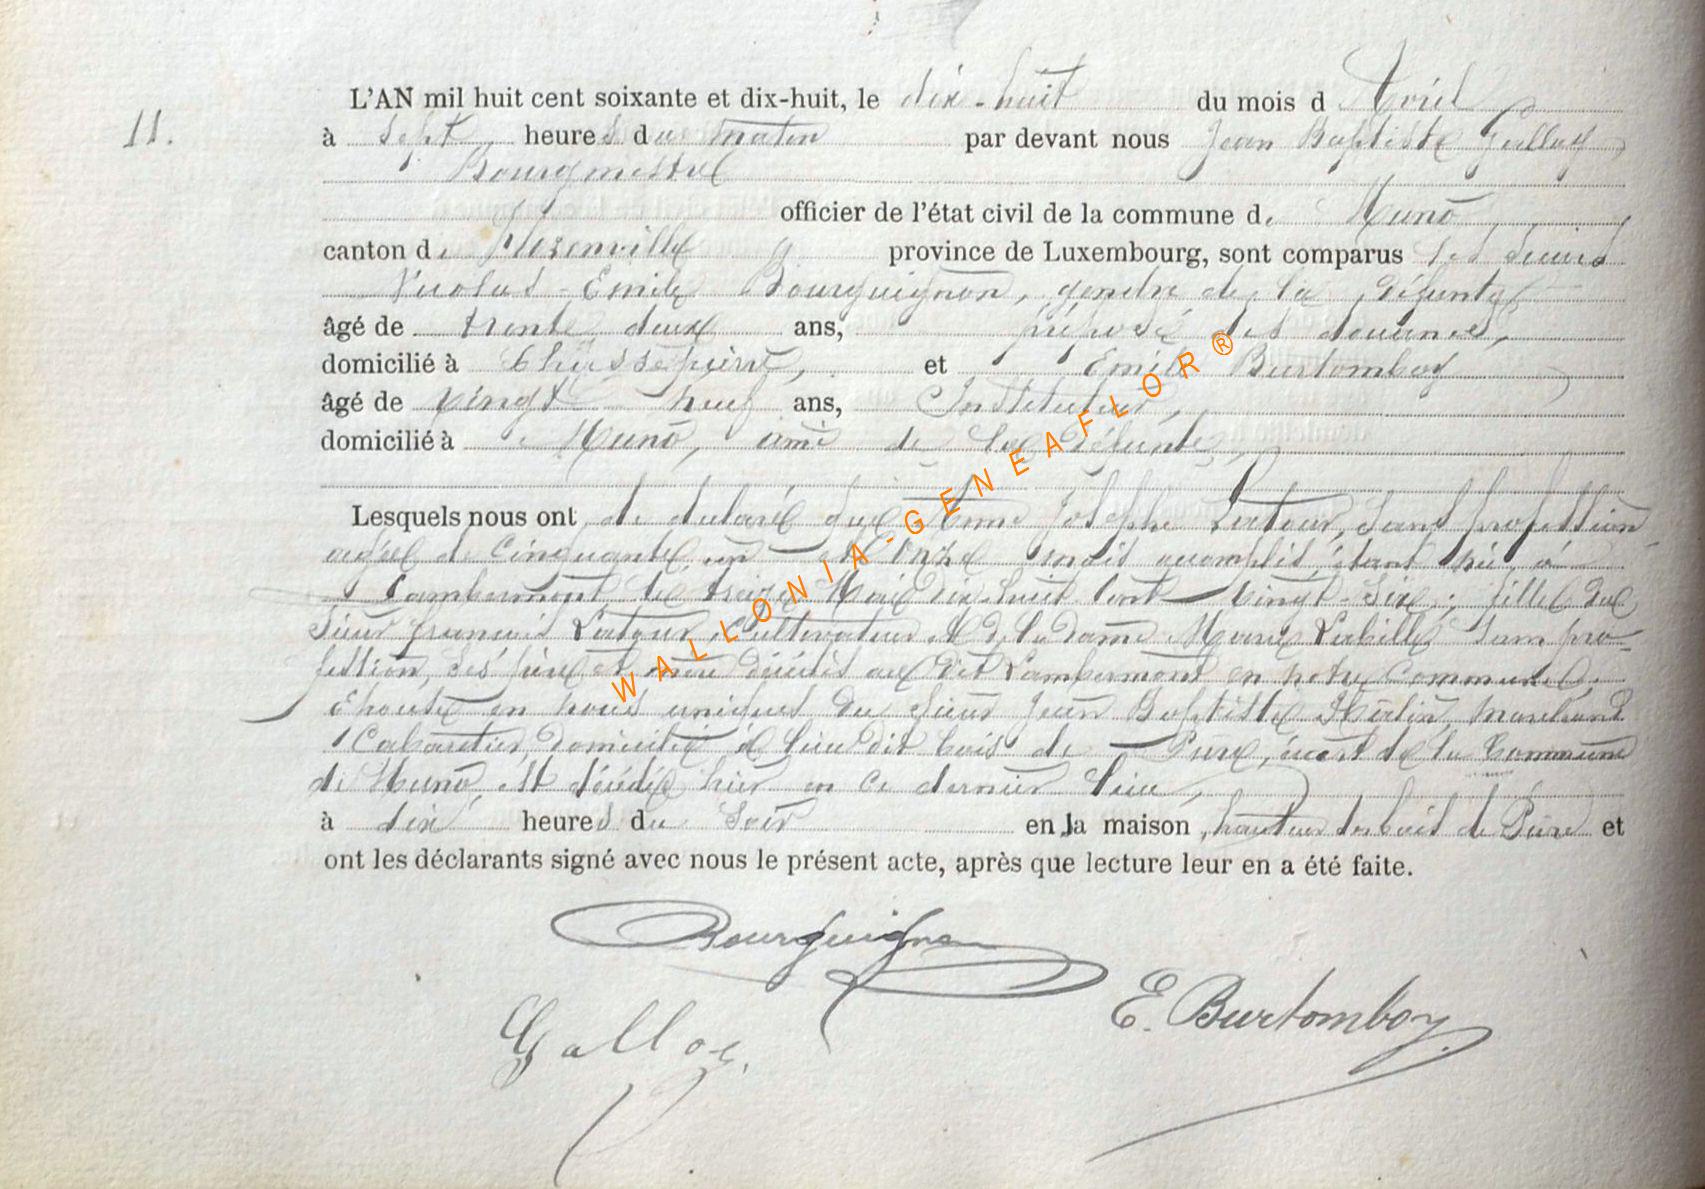 L'AN mil huit cent soixante et dix-huit, le dix-huit du mois d'Avril
11.
à sept heures du matin par devant nous Jean Baptiste
Bourgmestre
officier de l'état civil de la commune de Muno
canton de Florenville province de Luxembourg, sont comparus les sieurs
Nicolas-Emile Bourguignon, gendre de la défunte
âgé de trente deux ans, préposé des douanes,
domicilié à Chassepierre, et Emile Burtomboy
âgé de vingt neuf ans, Instituteur,
domicilié à Muno, ami de la défunte,
Lesquels nous ont de déclaré que Anne Josephe Latour, sans profession
agée de cinquante un et onze mois accomplis, étant née à
Lambermont le treize Mai dix-huit cent vingt-six, fille du
sieur français Latour, Cultivateur et de la dame Marie Labille sans pro-
fession, ses père et mère décédés au dit Lambermont en notre Commune,
Epouse en noces uniques du sieur Jean Baptiste marchand
Cabaretier, domicilié à lieu dit bois de Pure, écart de la Commune
de Muno, est décédée hier en ce dernier lieu,
à dix heures du soir en la maison, hauteur des bois de Pure et
ont les déclarants signé avec nous le présent acte, après que lecture leur en a été faite.
Bourguignon
E. Burtomboy
WALLONIA-GENEAFLOR®